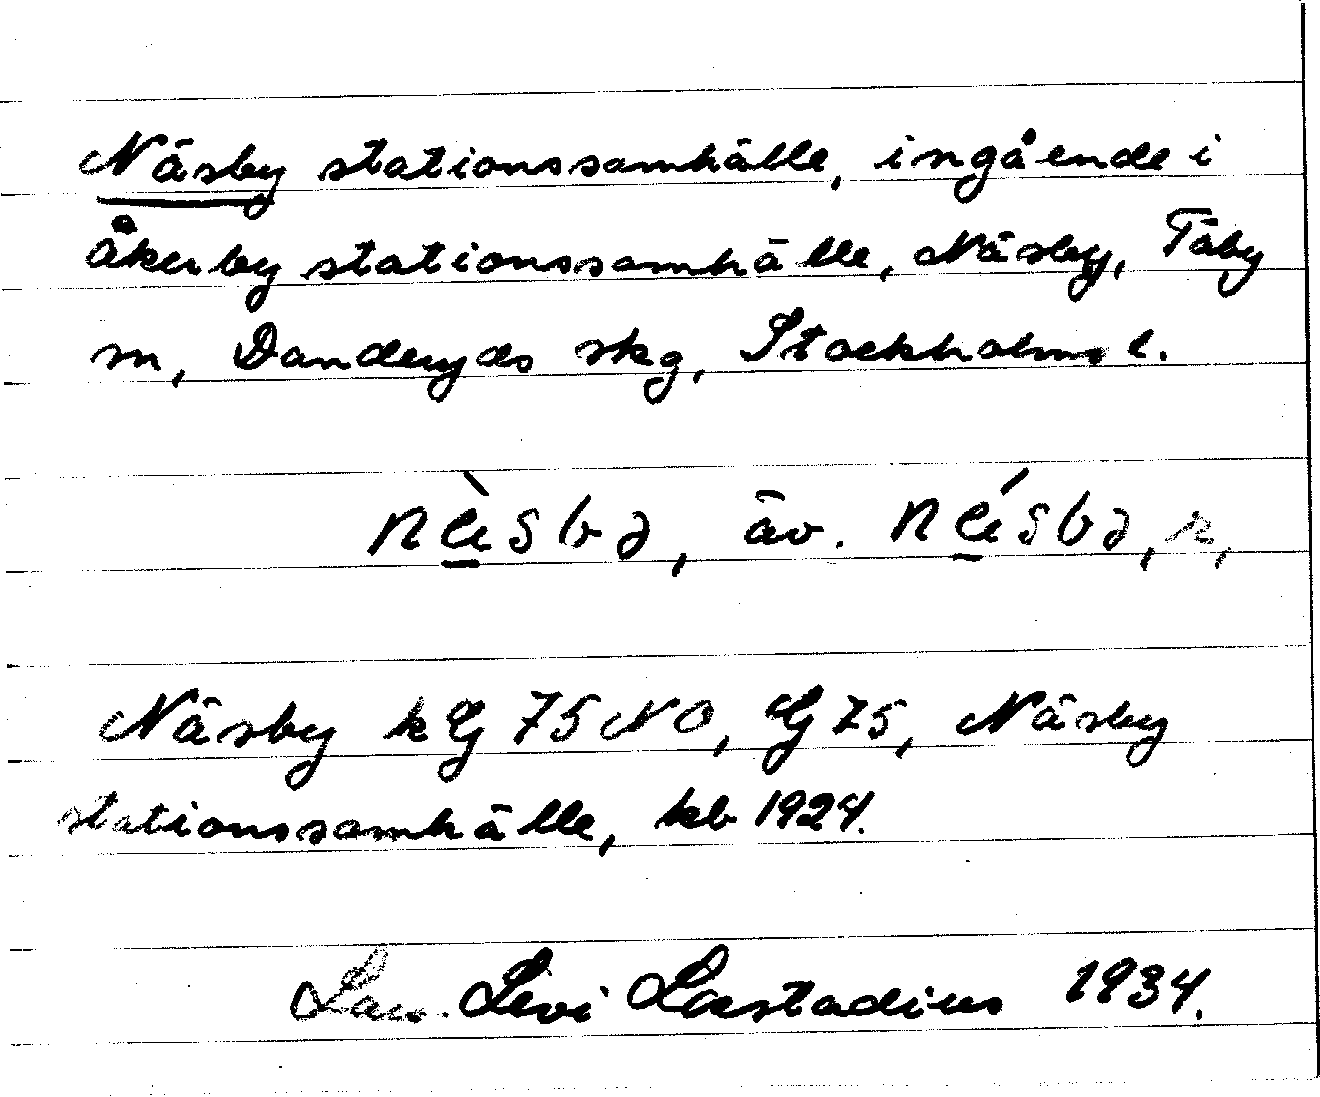 Näsby stationssamhälle, ingående i
Åkerby stationssamhälle, Näsby, Täby
sn, Danderyds skg, Stockholms l.
næ̀sbə, äv. nǽsbə, n,
Näsby kG 75 NO, G 75, Näsby
stationssamhälle, kb 1924.
Lars Levi Læstadius 1934.